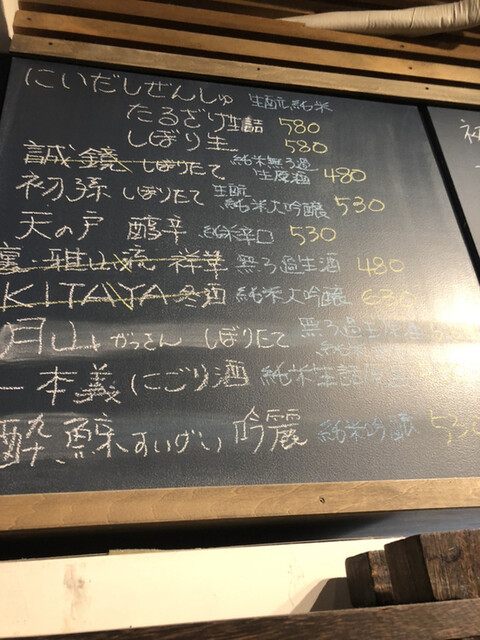 にいだしぜんしゅ 生酛純米
たるざけ生詰 580
しぼり生 580
誠鏡 しぼりたて 純米無ろ過
生原酒 480
初孫 しぼりたて 生酛
純米大吟醸 530
天の戸 醇辛 純米辛口 530
裏・雅山流 祥華 無ろ過生酒 480
KITAYA 冬酒 純米大吟醸 630
月山 がっさん しぼりたて 無ろ過生原酒
純米
一本義 にごり酒 純米生詰
酔鯨 すいげい 吟麗 純米吟醸 530
初